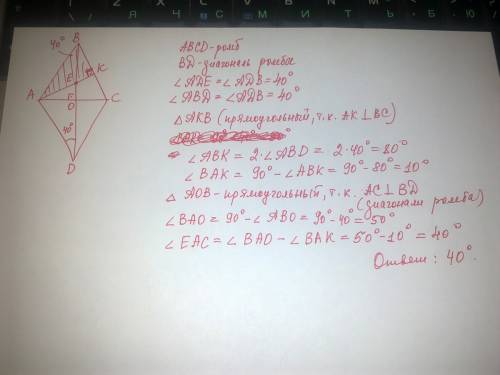 40°
B
K
E
A
E
O
C
40°
D
ABCD - ромб
BD - диагональ ромба
∠ADE = ∠ADB = 40°
∠ABD = ∠ADB = 40°
△ AKB (прямоугольный, т.к. AK ⊥ BC)
∠ABK = 2·∠ABD = 2·40° = 80°
∠BAK = 90° - ∠ABK = 90° - 80° = 10°
△ AOB - прямоугольный, т.к. AC ⊥ BD
(диагонали ромба)
∠BAO = 90° - ∠ABO = 90° - 40° = 50°
∠EAC = ∠BAO - ∠BAK = 50° - 10° = 40°
Ответ: 40°.